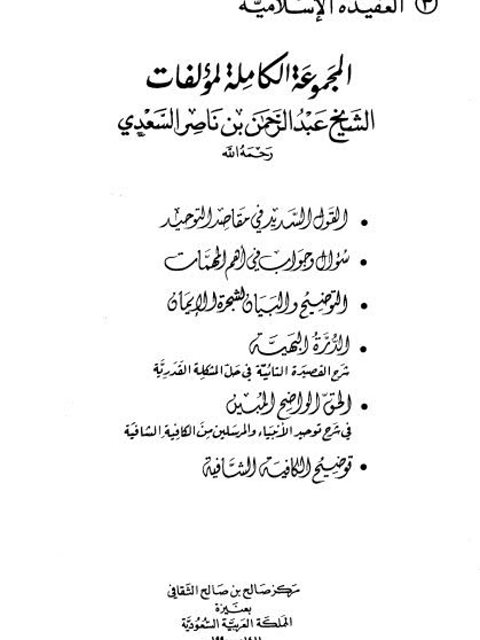 ٣ العقيدة الإسلامية
المجموعة الكاملة لمؤلفات
الشيخ عبد الرحمن بن ناصر السعدي
رحمه الله
• القول السديد في مقاصد التوحيد
• سؤال وجواب في أهم المهمات
• التوضيح والبيان لشجرة الإيمان
• الدرة البهية
شرح القصيدة التائية في حل المشكلة القدرية
• الحق الواضح المبين
في شرح توحيد الأنبياء والمرسلين من الكافية الشافية
• توضيح الكافية الشافية
مركز صالح بن صالح الثقافي
بعنيزة
المملكة العربية السعودية